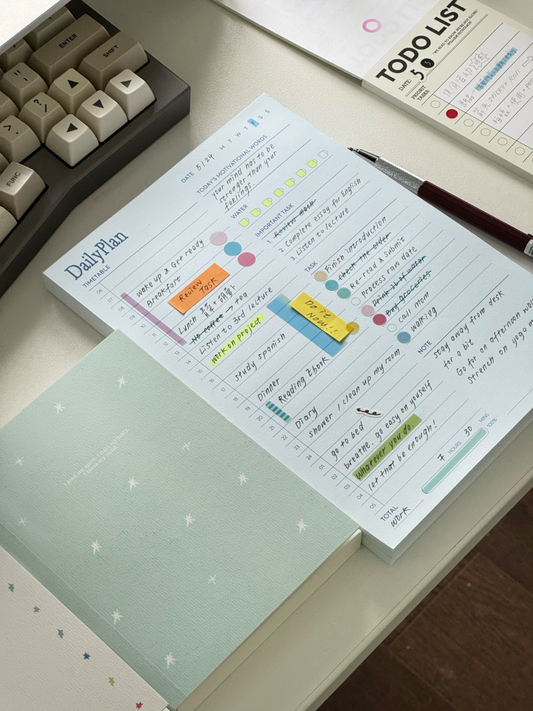 ENTER
SHIFT
"
'
?
/
>
.
FUNC
TODO LIST
DATE. 5
PRIORITY
TASKS
DATE 5/24 M T W T F S S
TODAY'S MOTIVATIONAL WORDS
your mind has to be
stronger than your
feelings.
WATER
IMPORTANT TASK
1. Review math
2. Complete essay for English
3. Listen to lecture
TASK
Finish introduction
check the order
Re-read & submit
Process raw data
Drink 1L of water
Call mom
Walking
NOTE
stay away from desk
for a bit
Go for an afternoon walk
strench on yoga ma
DailyPlan
TIMETABLE
Wake up & Get ready
Breakfast
REVIEW
TASK
Lunch
No coffee → Tea
Listen to 3rd lecture
Work on project
DO IT
NOW!!
study spanish
Dinner
Reading Ebook
Diary
shower / clean up my room
go to bed
breathe. go easy on yourself
whatever you do.
let that be enough!
TOTAL
Work
7 HOURS 30 MINS
100%